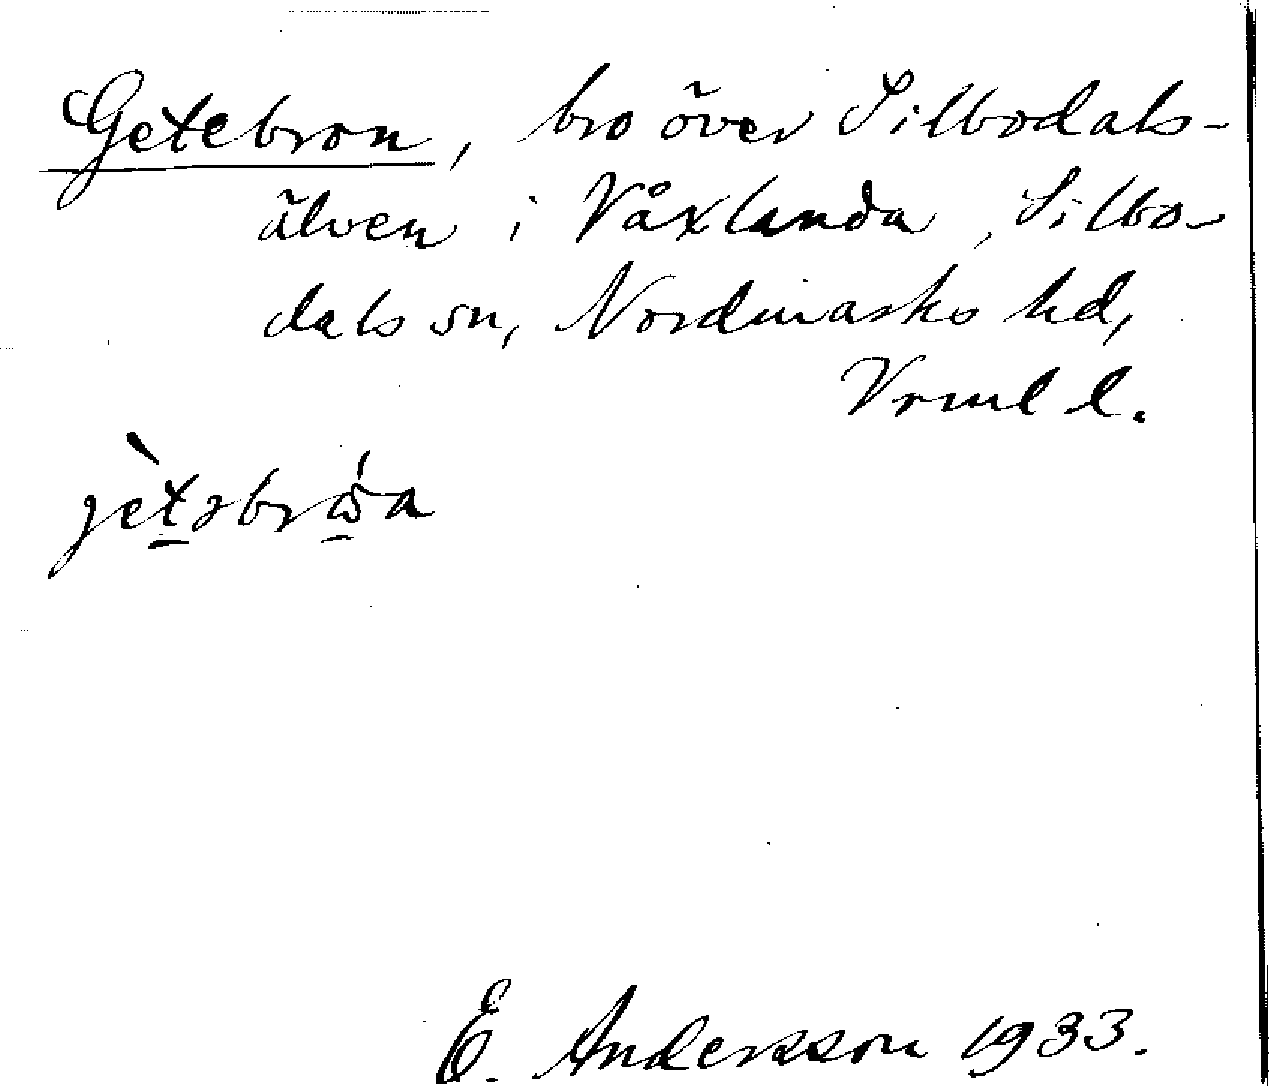 Getebron, bro över Silbodals-
älven i Våxlanda, Silbo-
dals sn, Nordmarks hd,
Vrml l.
E. Andersson 1933.